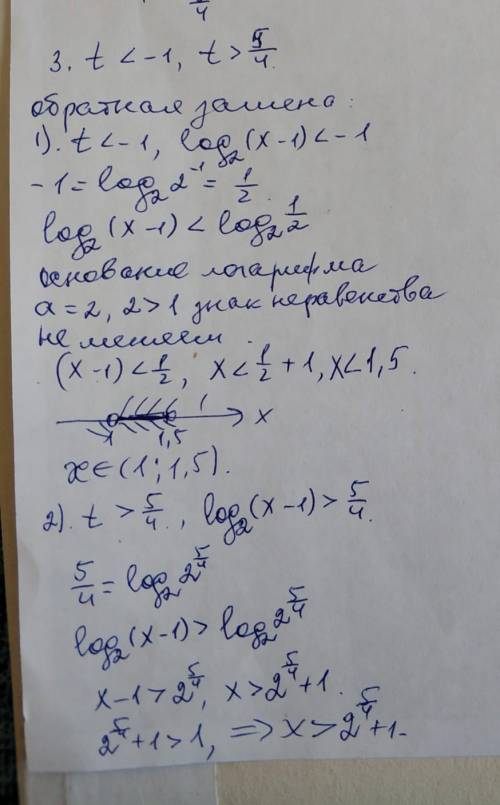 4
3. t < -1, t > 5/4.
обратная замена:
1). t < -1, log₂(x-1) < -1
-1 = log₂ 2⁻¹ = 1/2.
log₂(x-1) < log₂ 1/2
основание логарифма
a = 2, 2 > 1 знак неравенства
не меняем.
(x-1) < 1/2, x < 1/2 + 1, x < 1,5.
1 1,5 x
x ∈ (1; 1,5).
2). t > 5/4, log₂(x-1) > 5/4.
5/4 = log₂ 2^(5/4)
log₂(x-1) > log₂ 2^(5/4)
x-1 > 2^(5/4), x > 2^(5/4) + 1.
2^(5/4) + 1 > 1, => x > 2^(5/4) + 1.